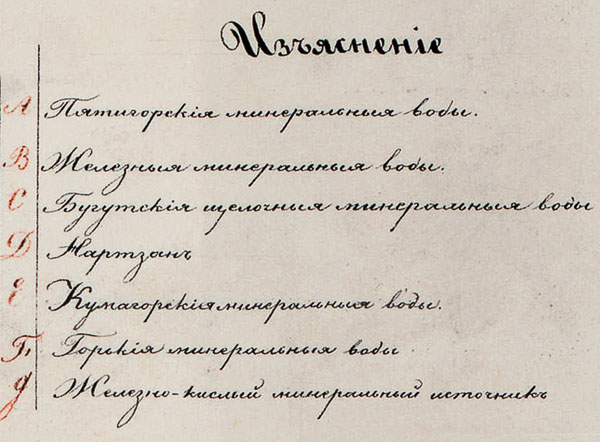 Изъясненіе
A Пятигорскія минеральныя воды.
B Железныя минеральныя воды.
C Бугутскія щелочныя минеральныя воды
D Нартзанъ
E Кумагорскія минеральныя воды.
F. Горькія минеральныя воды
g Железно-кислый минеральный источникъ